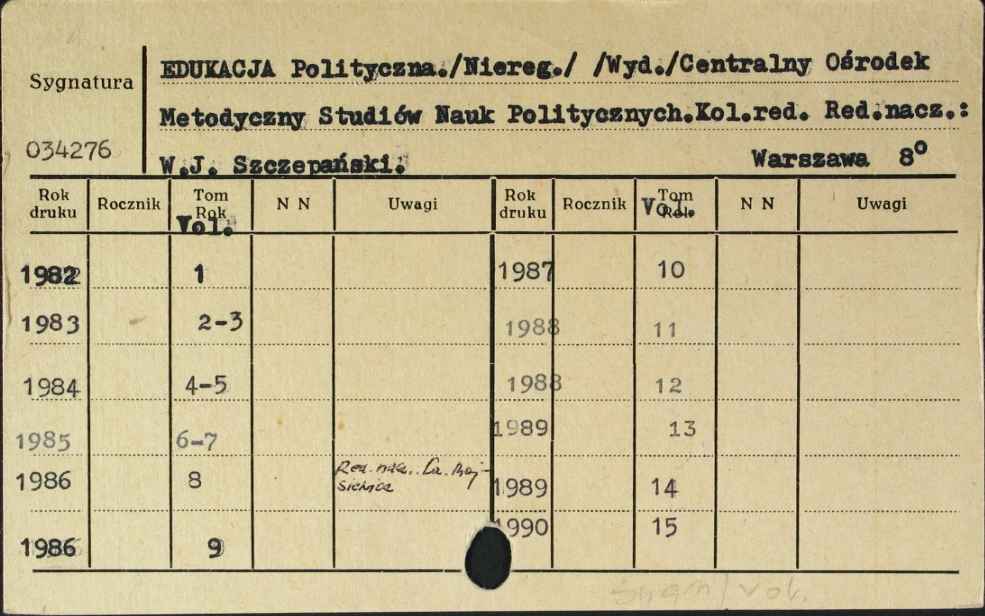 EDUKACJA Polityczna./Niereg./ /Wyd./Centralny Ośrodek
Sygnatura
Metodyczny Studiów Nauk Politycznych.Kol.red. Red.nacz.:
034276
W.J. Szczepański. Warszawa 8⁰
Rok druku Rocznik Tom Rok Vol. N N Uwagi Rok druku Rocznik Tom Rok Vol. N N Uwagi
1982 1 1987 10
1983 2-3 1988 11
1984 4-5 1988 12
1985 6-7 1989 13
1986 8 Red. 1989 14
1990 15
1986 9
vol.